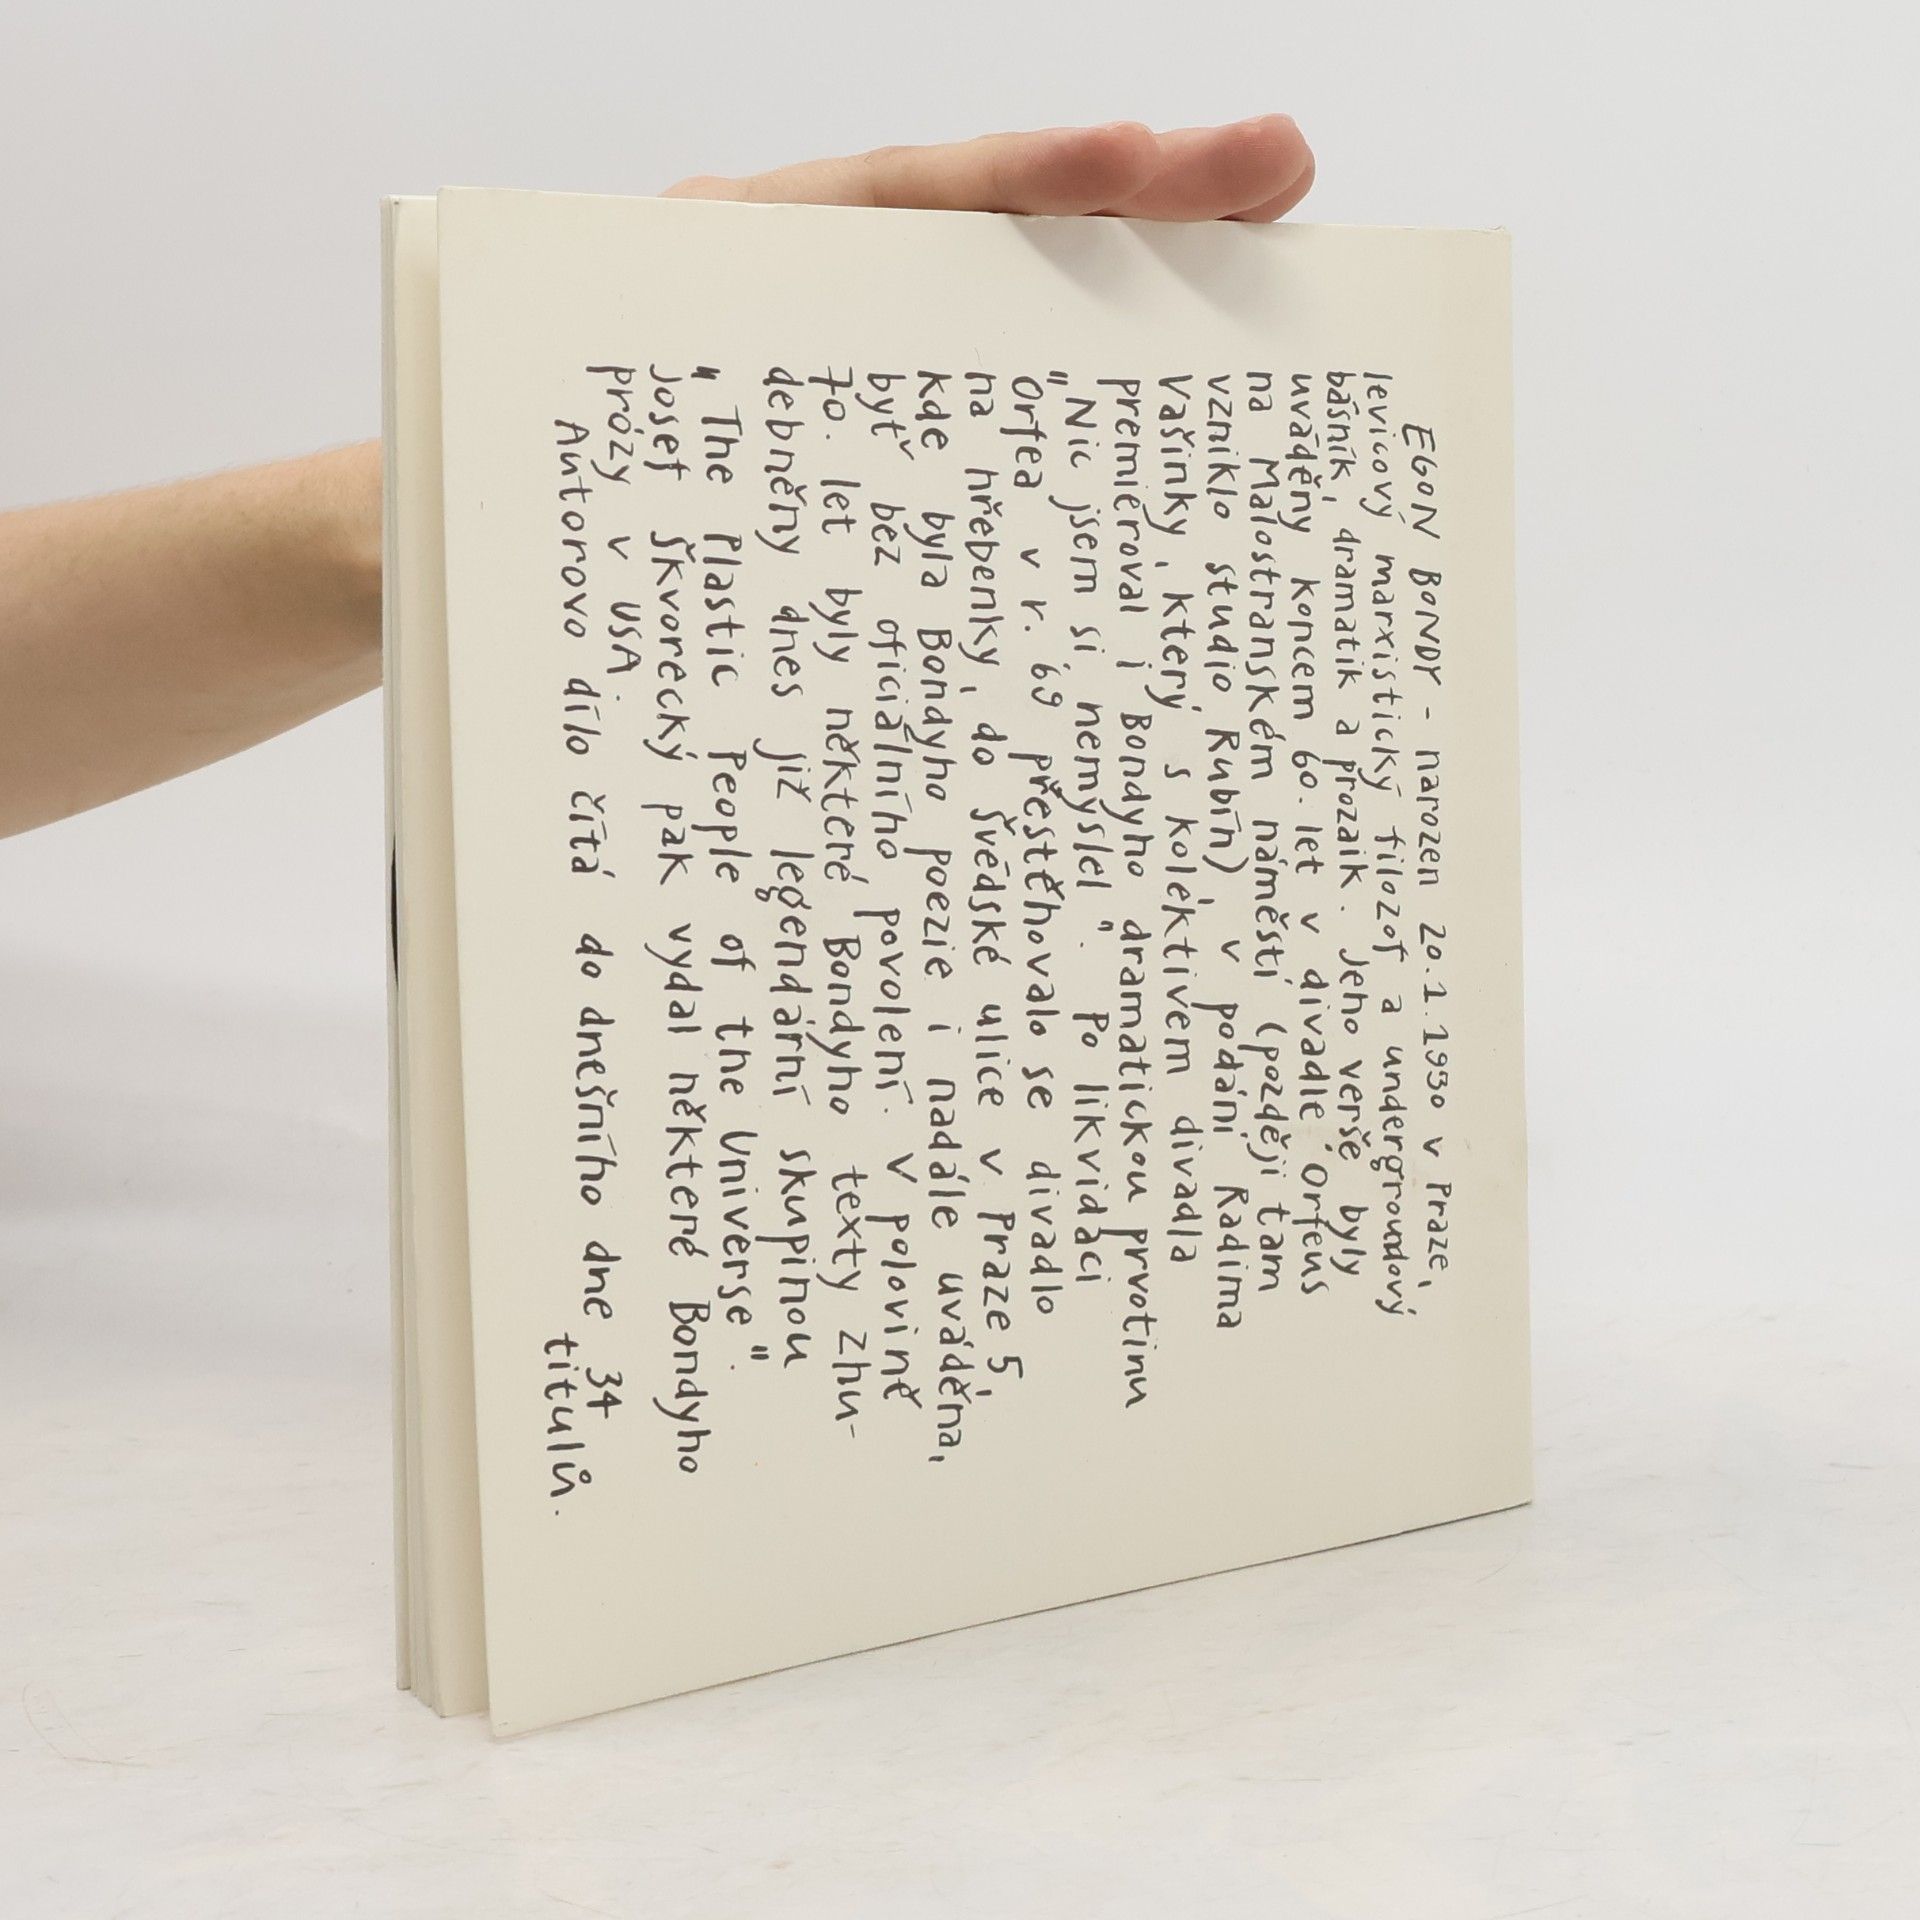 EGON BONDY - narozen 20.1.1930 v Praze,
levicový marxistický filozof a undergroundový
básník, dramatik a prozaik. Jeho verše byly
uváděny koncem 60. let v divadle Orfeus
na Malostranském náměstí (později tam
vzniklo studio Rubín), v podání Radima
Vašinky, který s kolektivem divadla
premiéroval i Bondyho dramatickou prvotinu
"Nic jsem si nemyslel". Po likvidaci
Orfea v r. 69 přestěhovalo se divadlo
na hřebenky, do Švédské ulice v Praze 5,
kde byla Bondyho poezie i nadále uváděna,
byť bez oficiálního povolení. V polovině
70. let byly některé Bondyho texty zhu-
debněny dnes již legendární skupinou
"The Plastic People of the Universe".
Josef Škvorecký pak vydal některé Bondyho
prózy v USA.
Autorovo dílo čítá do dnešního dne 34
titulů.